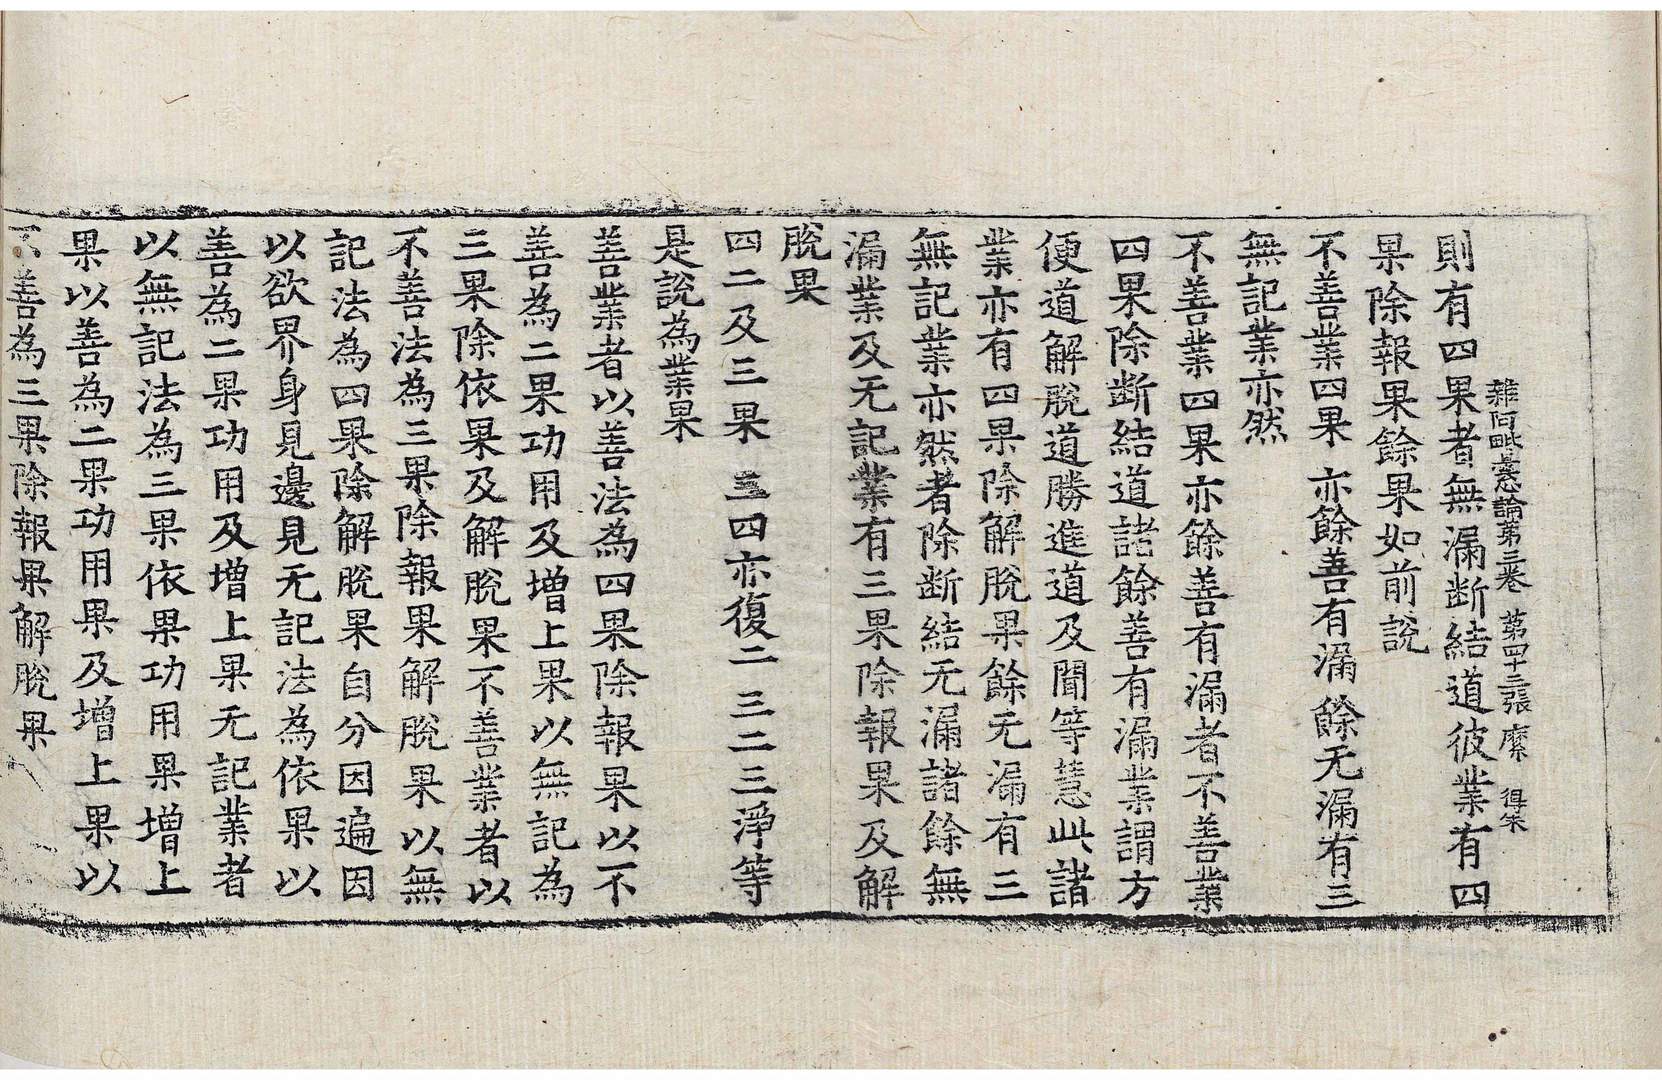 雜阿毗曇心論第三卷 第四十三張 縻 得朱
則有四果者無漏断結道彼業有四
果除報果餘果如前説
不善業四果 亦餘善有漏 餘无漏有三
無記業亦然
不善業四果亦餘善有漏者不善業
四果除断結道諸餘善有漏業謂方
便道解脫道勝進道及聞等慧此諸
業亦有四果除解脫果餘无漏有三
無記業亦然者除断結无漏諸餘無
漏業及无記業有三果除報果及解
脫果
四二及三果 三四亦復二 三二三淨等
是説為業果
善業者以善法為四果除報果以不
善為二果功用及增上果以無記為
三果除依果及解脫果不善業者以
不善法為三果除報果解脫果以無
記法為四果除解脫果自分因遍因
以欲界身見邊見无記法為依果以
善為二果功用及增上果无記業者
以無記法為三果依果功用果增上
果以善為二果功用果及增上果以
不善為三果除報果解脫果